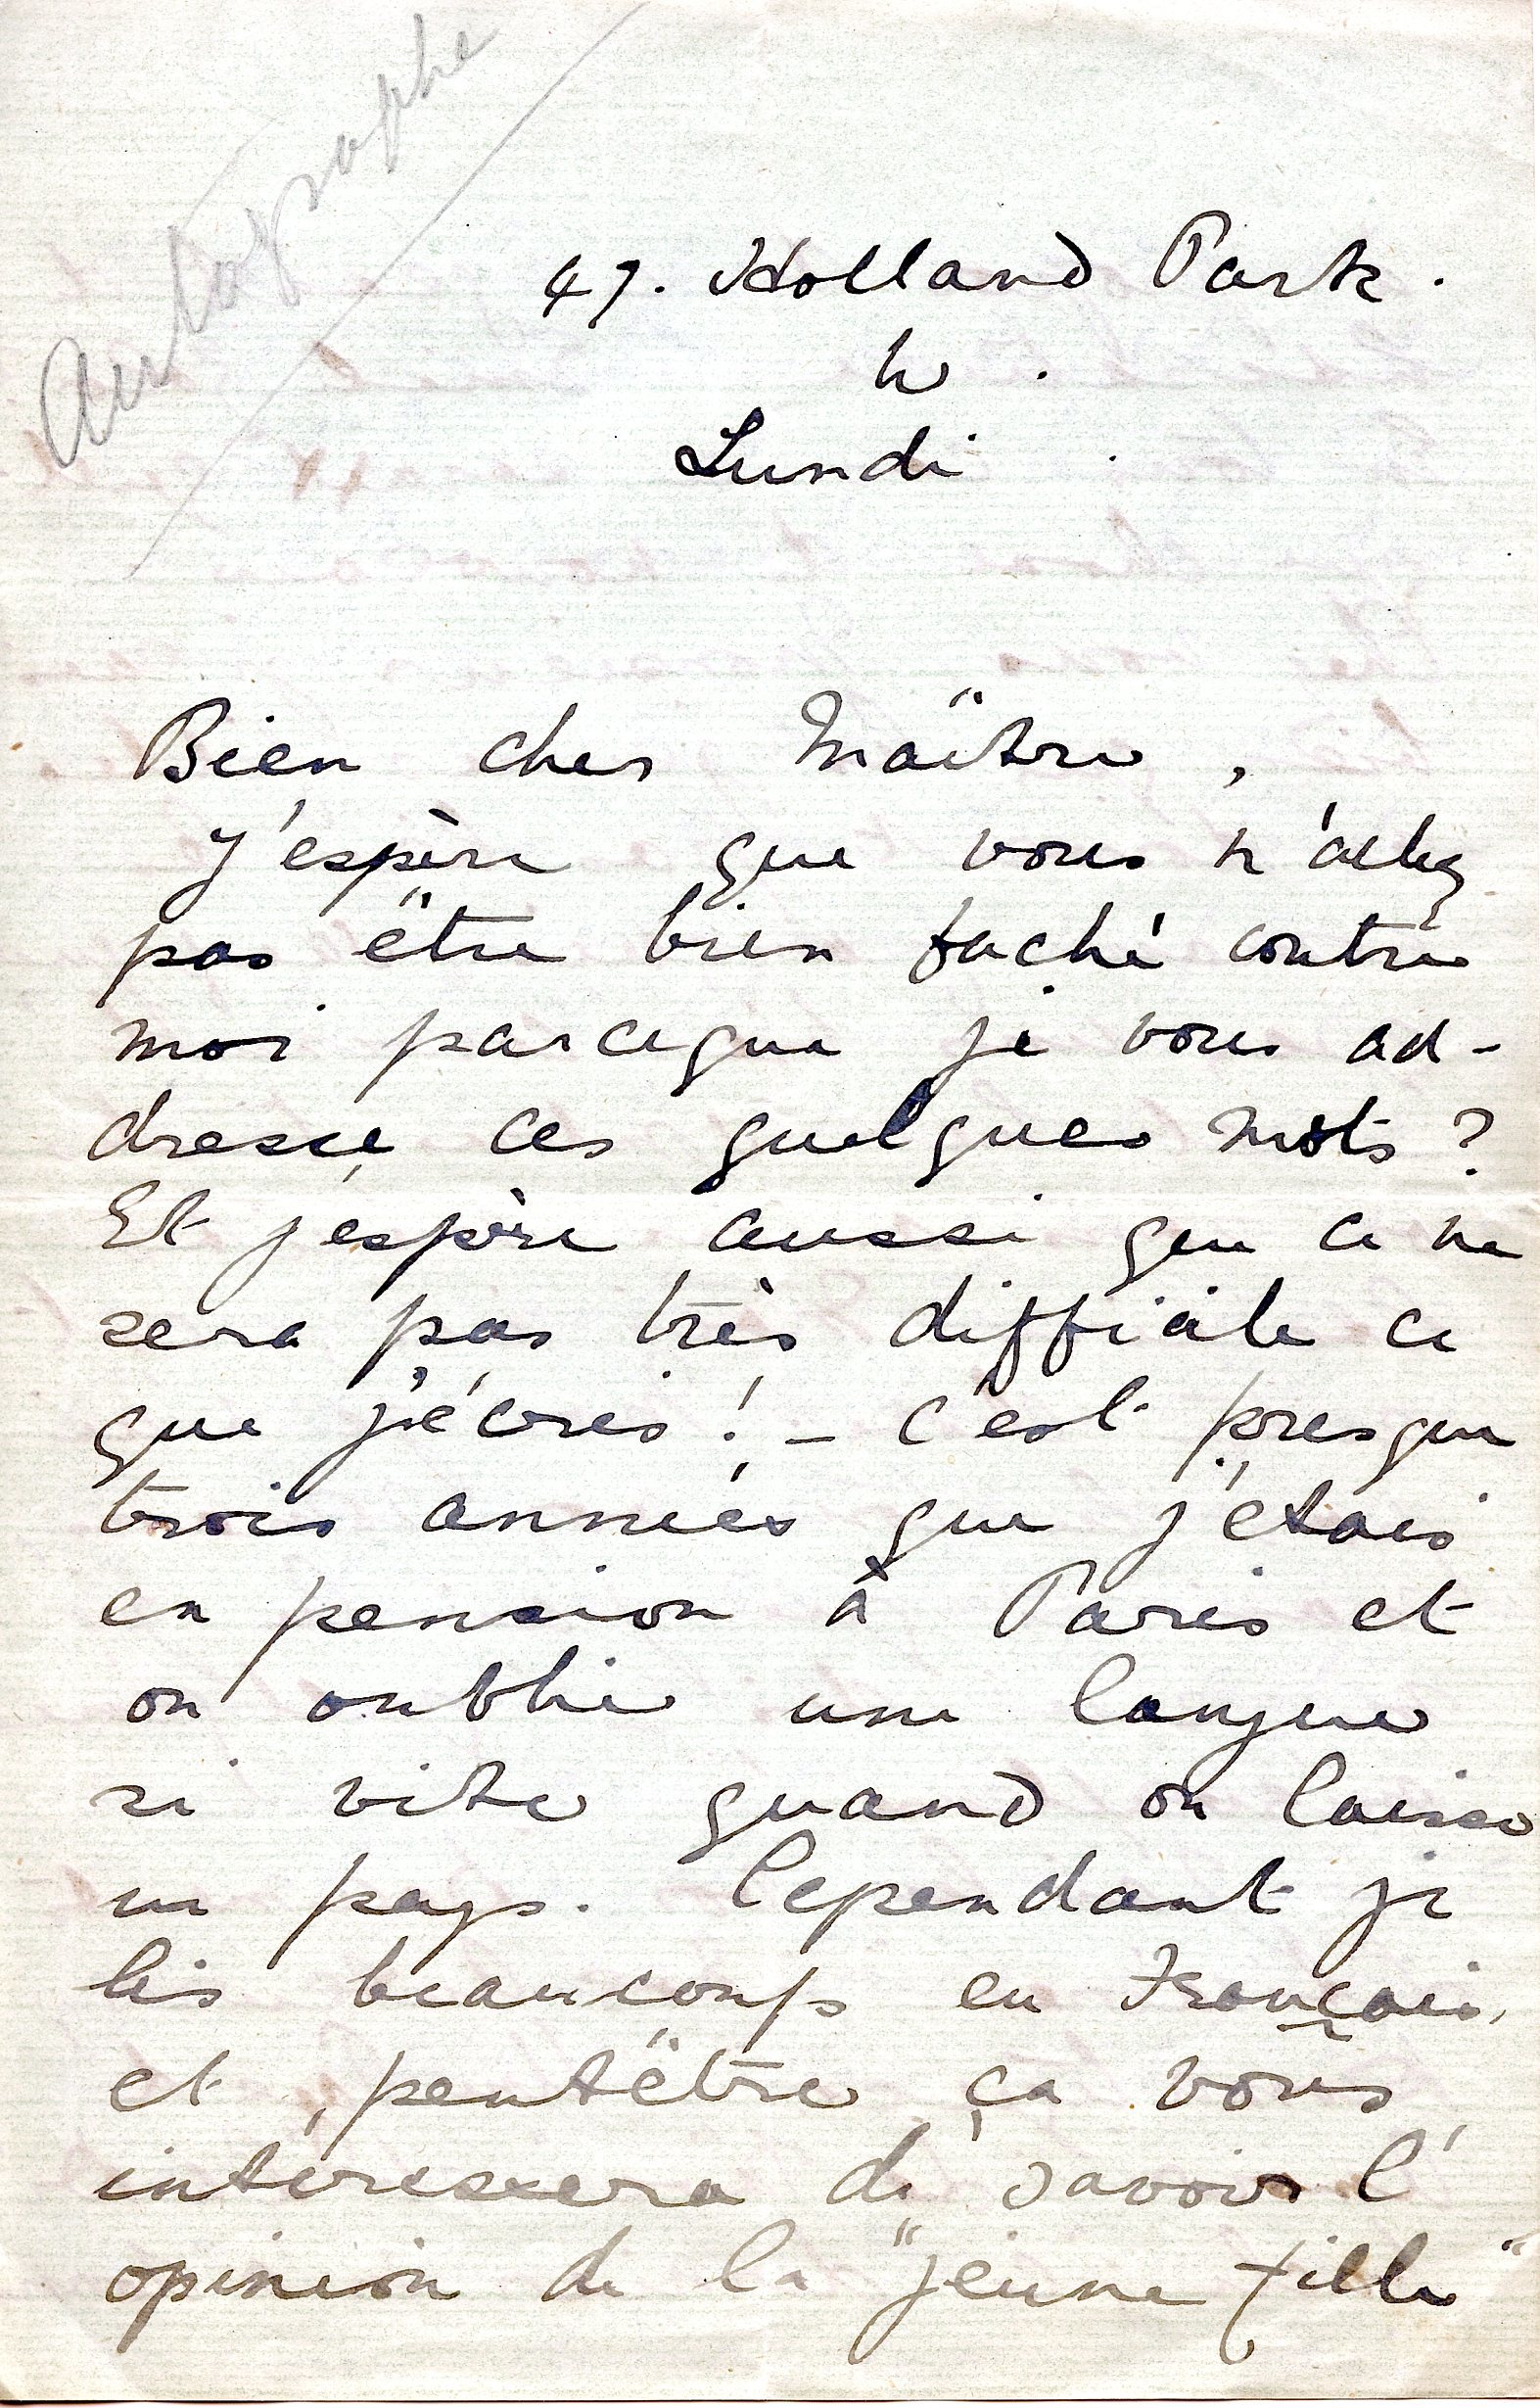 Autographe
47. Holland Park.
W.
Lundi.
Bien cher Maître,
J'espère que vous n'allez
pas être bien faché contre
moi parceque je vous ad-
dresse ces quelques mots?
Et j'espère aussi que ce ne
sera pas très difficile ce
que j'écris! - C'est presque
trois années que j'étais
en pension à Paris et
on oublie une langue
si vite quand on laisse
un pays. Cependant je
lis beaucoup en Français,
et peutêtre ça vous
intéressera de savoir l'
opinion de la "jeune fille"